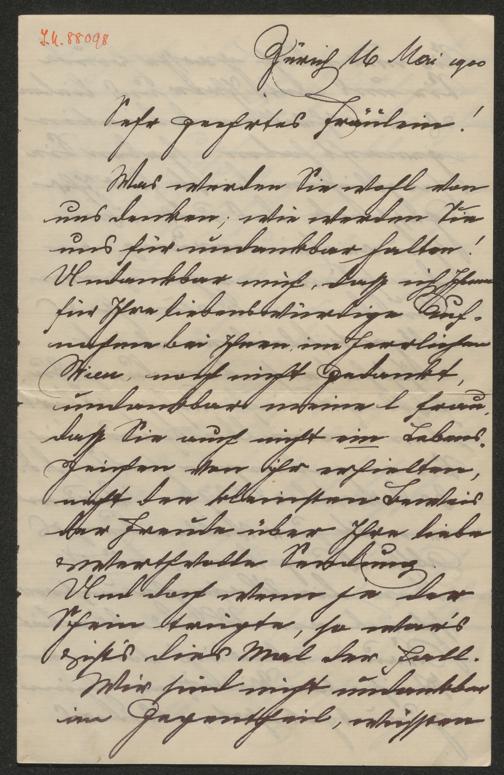 I.N. 88098
Zürich 16 Mai 1900
Sehr geehrtes Fräulein!
Was werden Sie wohl von
uns denken; wie werden Sie
uns für undankbar halten!
Undankbar mich, daß ich Ihnen
für Ihre liebenswürdige Auf-
nahme bei Ihnen im herrlichen
Wien noch nicht gedankt,
undankbar meine l Frau,
daß Sie auch nicht ein Lebens-
zeichen von ihr erhielten,
nicht den kleinsten Beweis
der Freude über Ihre liebe
& werthvolle Sendung.
Und doch wenn je der
Schein trügte, so war's
& ist's dies Mal der Fall.
Wir sind nicht undankbar
im Gegentheil, wüssten